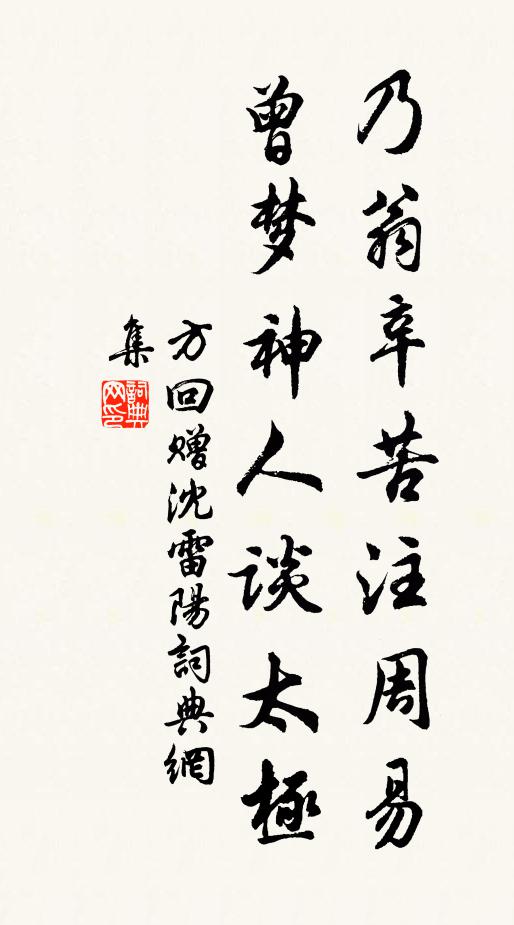 乃翁辛苦注周易
曾梦神人谈太極
方回赠沈雷陽詞典網
集
詞典网印